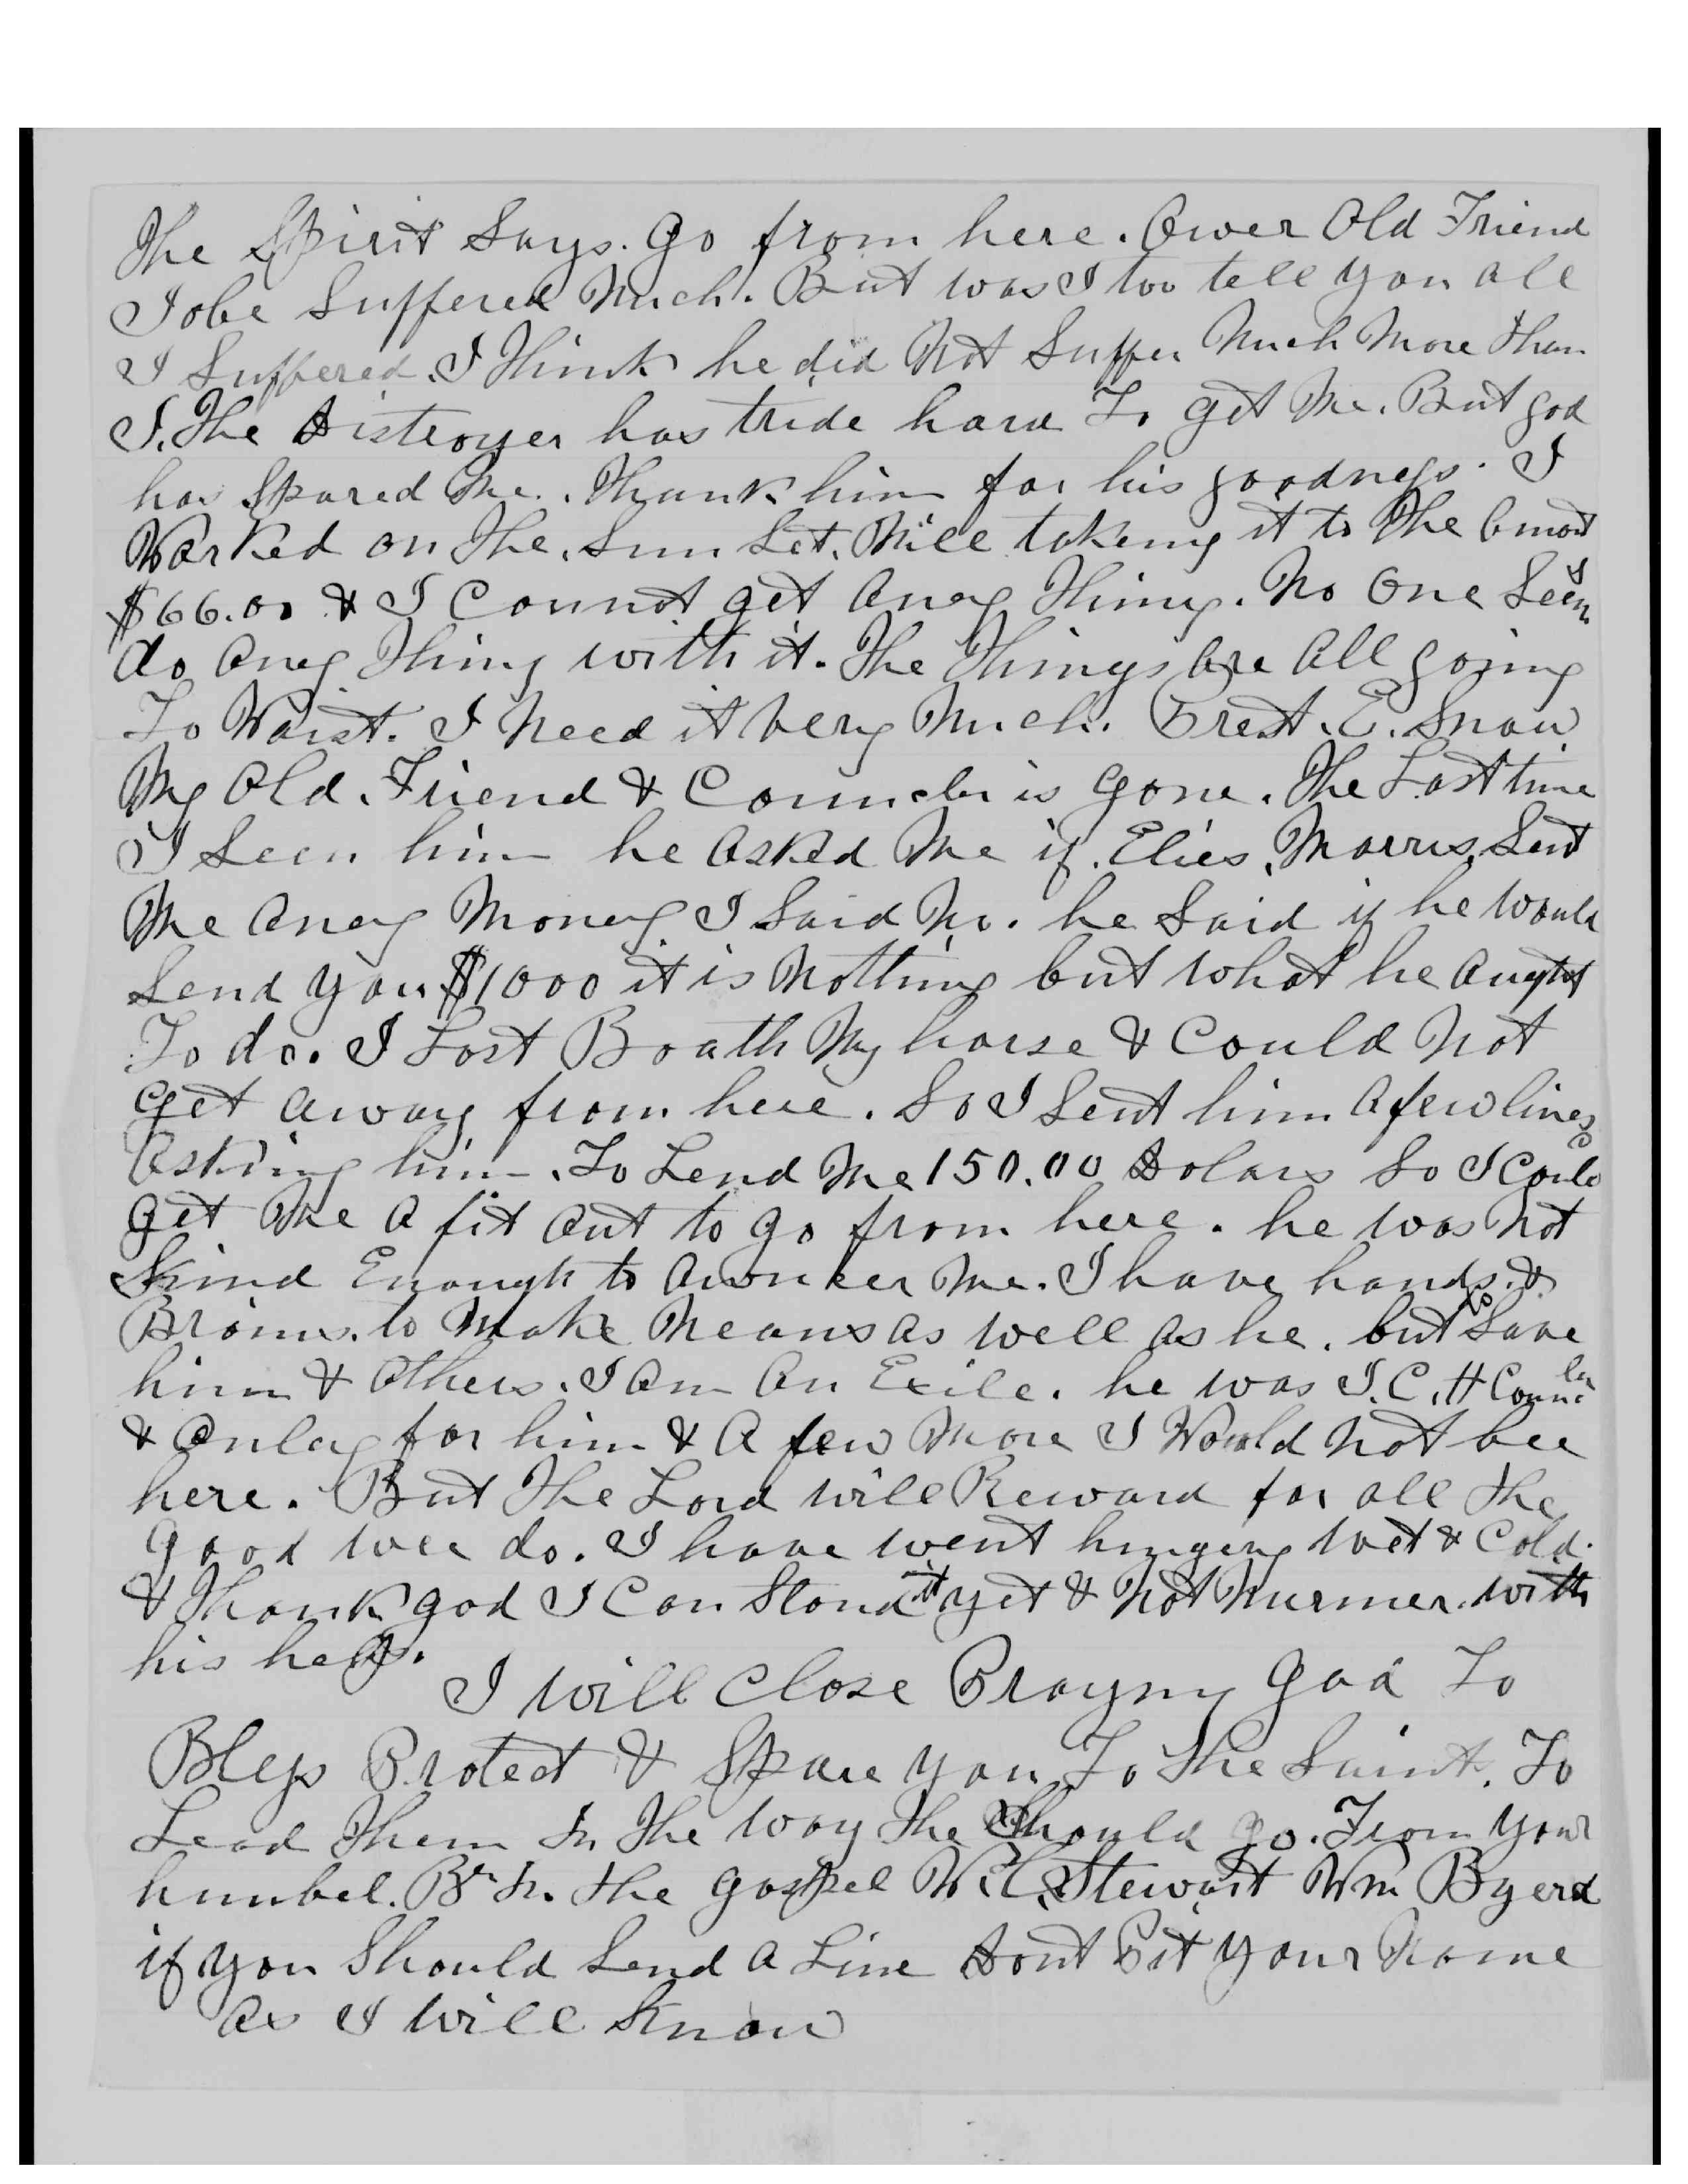 The Spirit Says. Go from here. Ower Old Friend
Jobe Suffered Much. But was I too tell you all
I Suffered. I Think he did Not Suffer Much More than
I. The Distroyer has tride hard To get Me. But god
has Spared Me. Thank him for his goodness. I
Worked on The. Sun Set. Mill takeing it to the Amont
$66.00 & I Connot get Aney Thing. No One Seem
do Aney Thing with it. The Things Are All going
To Waist. I Need it very Much. Prest. E. Snow
My Old. Friend & Councler is gone. The Last time
I Seen him he Asked Me if. Elies. Morris. Sent
Me Aney Money I Said No. he Said if he Would
Send you $1000 it is Nothing but what he Aught
To do. I Lost Boath My horse & Could Not
get Away from here. So I Sent him A few lines
Asking him. To Lend Me 150.00 Dolars So I Could
get Me A fit Out to go from here. he was Not
Kind Enough to Awncer Me. I have hands. &
Brains. to Make Means as well as he. but to Save
him & Others. I Am An Exile. he was I. C. H Councler
& Onley for him & A few More I Would Not bee
here. But The Lord will Reward for all the
good wee do. I have went hungery Wet & Cold.
& Thank god I Can Stand it yet & Not Murmer. with
his help.
I will Close Praying God To
Bless Protect & Spare you To The Saint. To
Lead Them In The Way The Should go. From your
humbel. Br In. the gospel W. C. Stewart Wm Byerd
if you Should Send A Line Dont Pit your Name
As I will Know